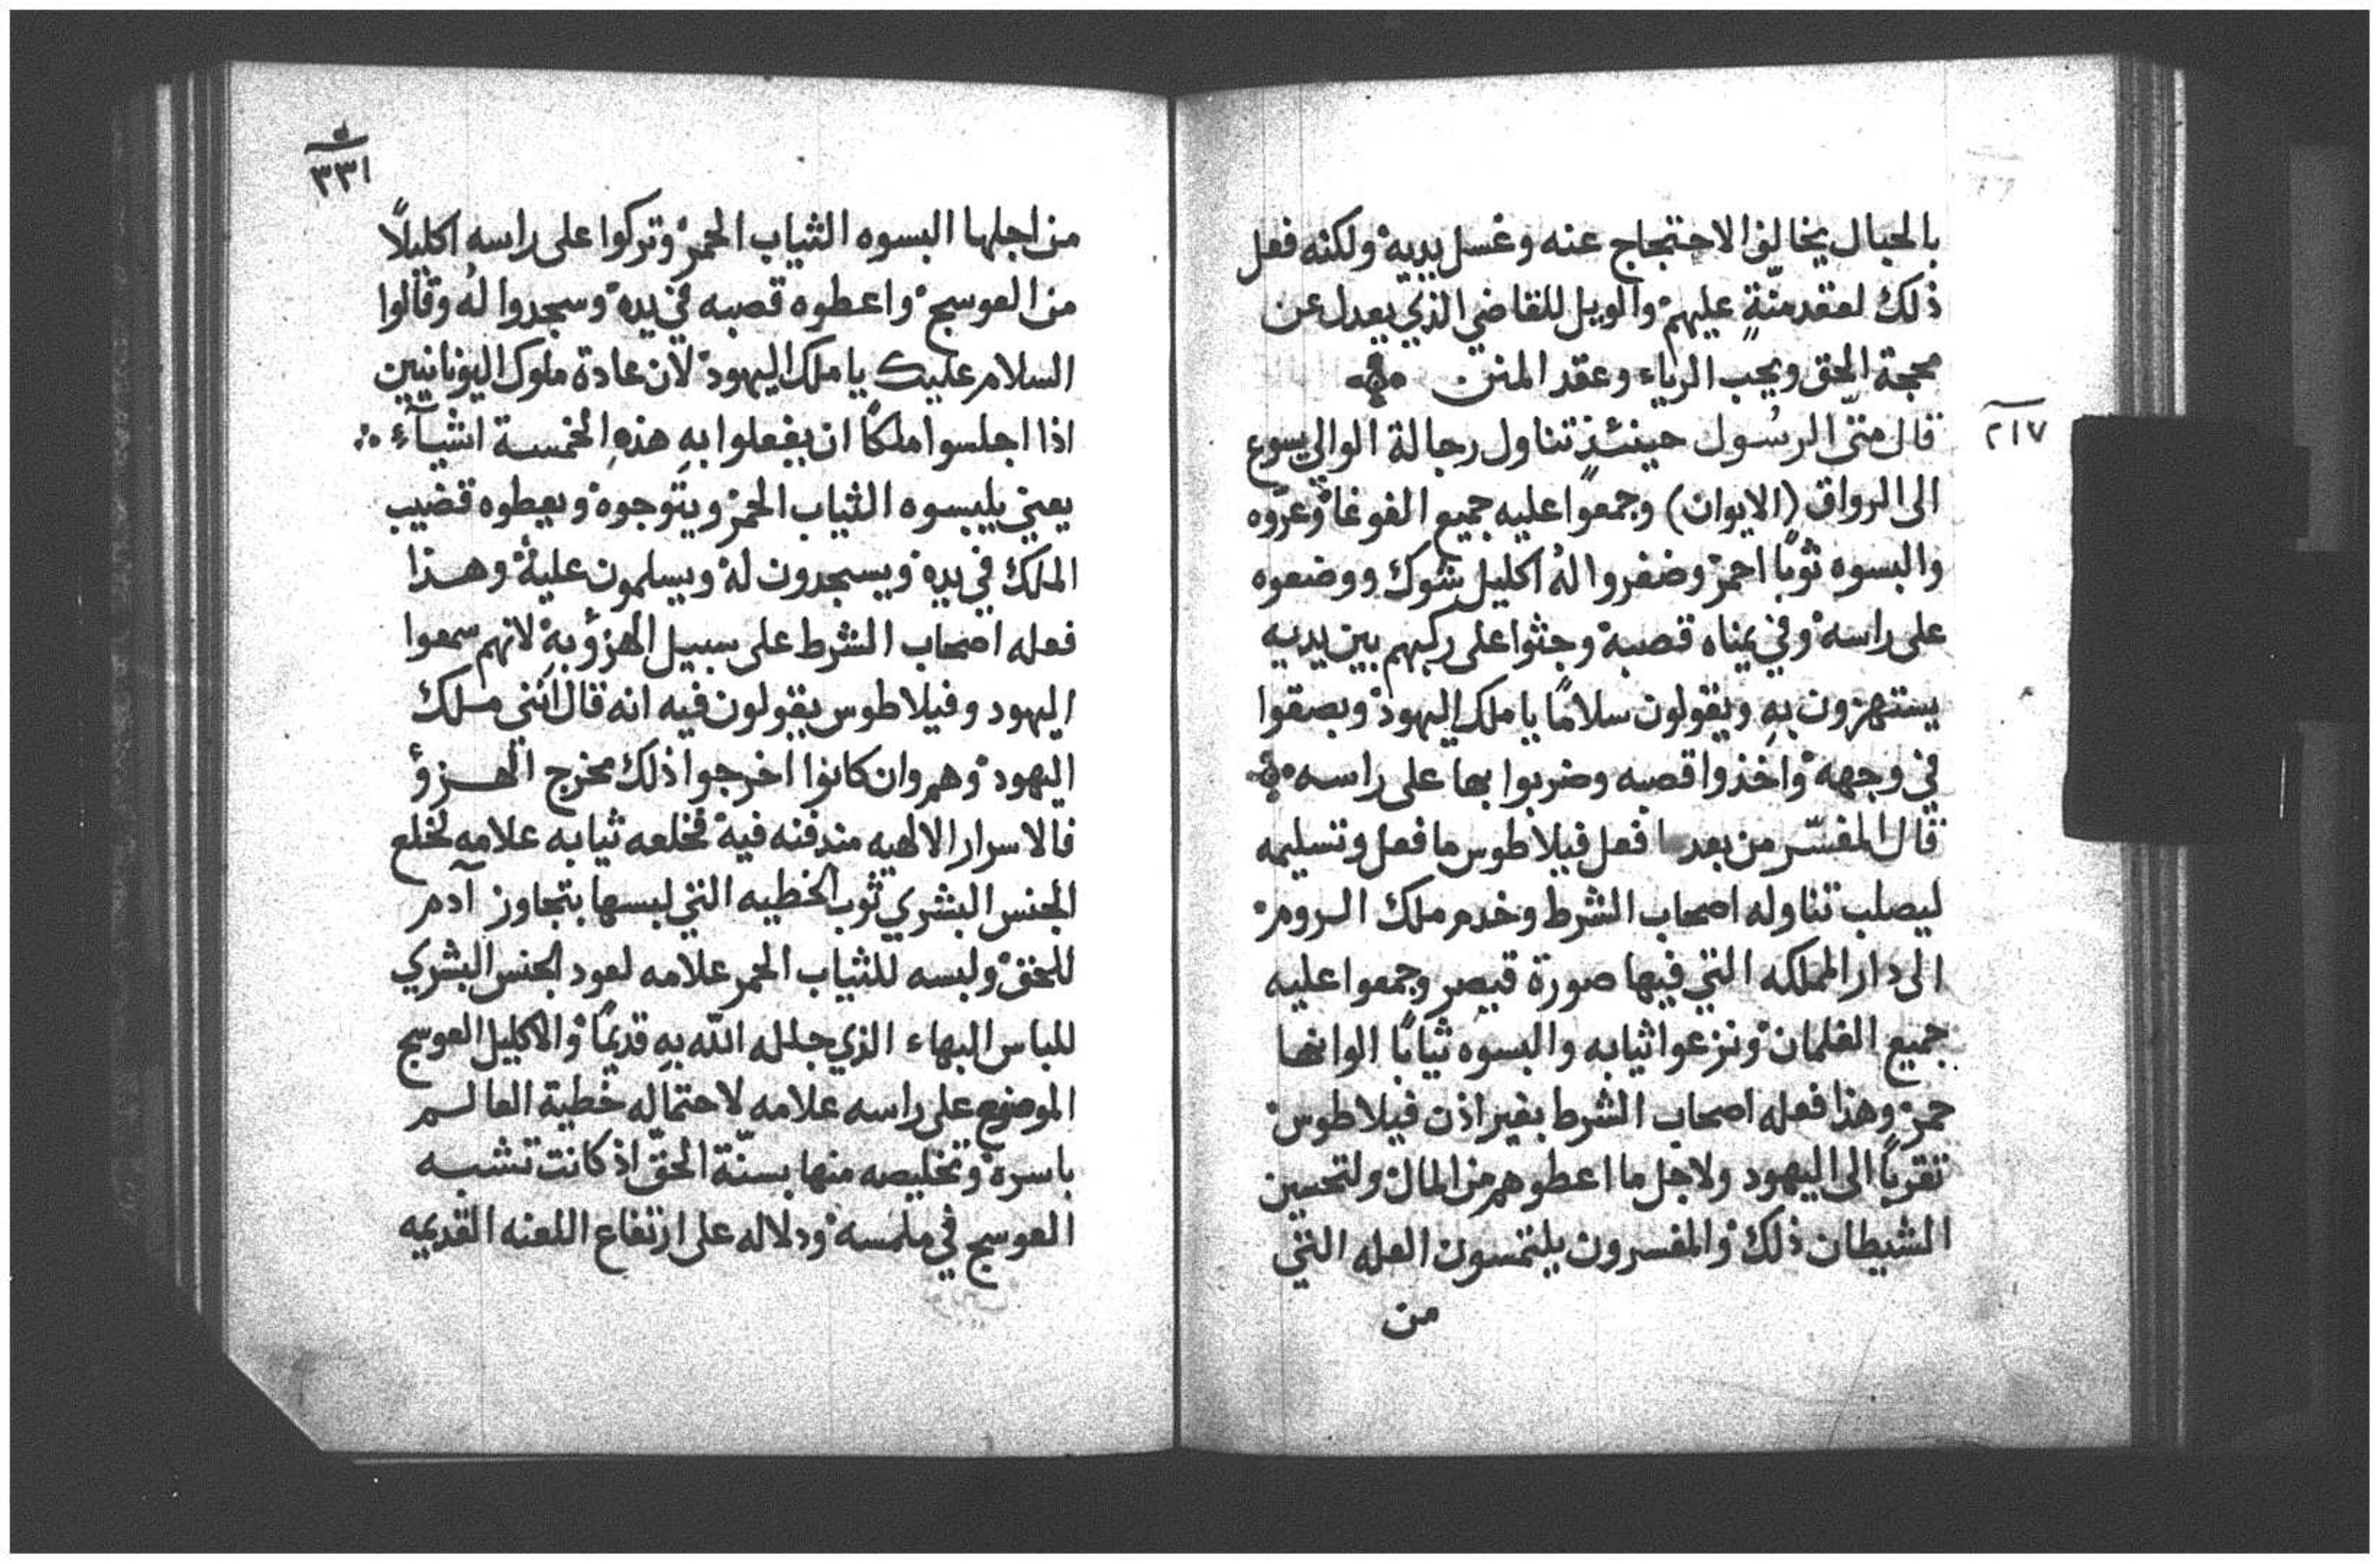 بالحبال يخالف الاحتجاج عنه وغسل يديه ولكنه فعل
ذلك لعقد منّةٍ عليهم والويل للقاضي الذي يعدل عن
محجة الحق ويحب الرياء وعقد المنن
٢١٧
قال متّى الرسُول حينئذٍ تناول رجالة الوالي يسوع
الى الرواق (الايوان) وجمعوا عليه جميع الغوغا وعرّوه
والبسوه ثوبًا احمر وضفروا لهُ اكليل شوك ووضعوه
على راسه وفي يمناه قصبة وجثوا على ركبهم بين يديه
يستهزون بهِ ويقولون سلامًا يا ملك اليهود وبصقوا
في وجهه واخذوا قصبه وضربوا بها على راسه
قال المفسّر من بعد ما فعل فيلاطوس ما فعل وتسليمه
ليصلب تناوله اصحاب الشرط وخدم ملك الروم
الى دار المملكه التي فيها صورة قيصر وجمعوا عليه
جميع الغلمان ونزعوا ثيابه والبسوه ثيابًا الوانها
حمر وهذا فعله اصحاب الشرط بغير اذن فيلاطوس
تقربًا الى اليهود ولاجل ما اعطوهم من المال ولتحسين
الشيطان ذلك والمفسرون يلتمسون العله التي
من
٣٣١
من اجلها البسوه الثياب الحمر وتركوا على راسهِ اكليلاً
من العوسج واعطوه قصبه في يده وسجدوا لهُ وقالوا
السلام عليك يا ملك اليهود لان عادة ملوك اليونانيين
اذا اجلسوا ملكًا ان يفعلوا بهِ هذهِ الخمسة اشيآء
يعني يلبسوه الثياب الحمر ويتوجوه ويعطوه قضيب
الملك في يده ويسجدون له ويسلمون عليه وهذا
فعله اصحاب الشرط على سبيل الهزؤ به لانهم سمعوا
اليهود وفيلاطوس يقولون فيه انه قال انني ملك
اليهود وهم وان كانوا اخرجوا ذلك مخرج الهزؤ
فالاسرار الالهيه مندفنه فيه فخلعه ثيابه علامه لخلع
الجنس البشري ثوب الخطيه التي لبسها بتجاوز آدم
للحق ولبسه للثياب الحمر علامه لعود الجنس البشري
للباس البهاء الذي جلله الله بهِ قديمًا والاكليل العوسج
الموضوع على راسه علامه لاحتماله خطية العالم
باسره وتخليصه منها بسنّة الحقّ اذ كانت تشبه
العوسج في ملمسه ودلاله على ارتفاع اللعنه القديمه